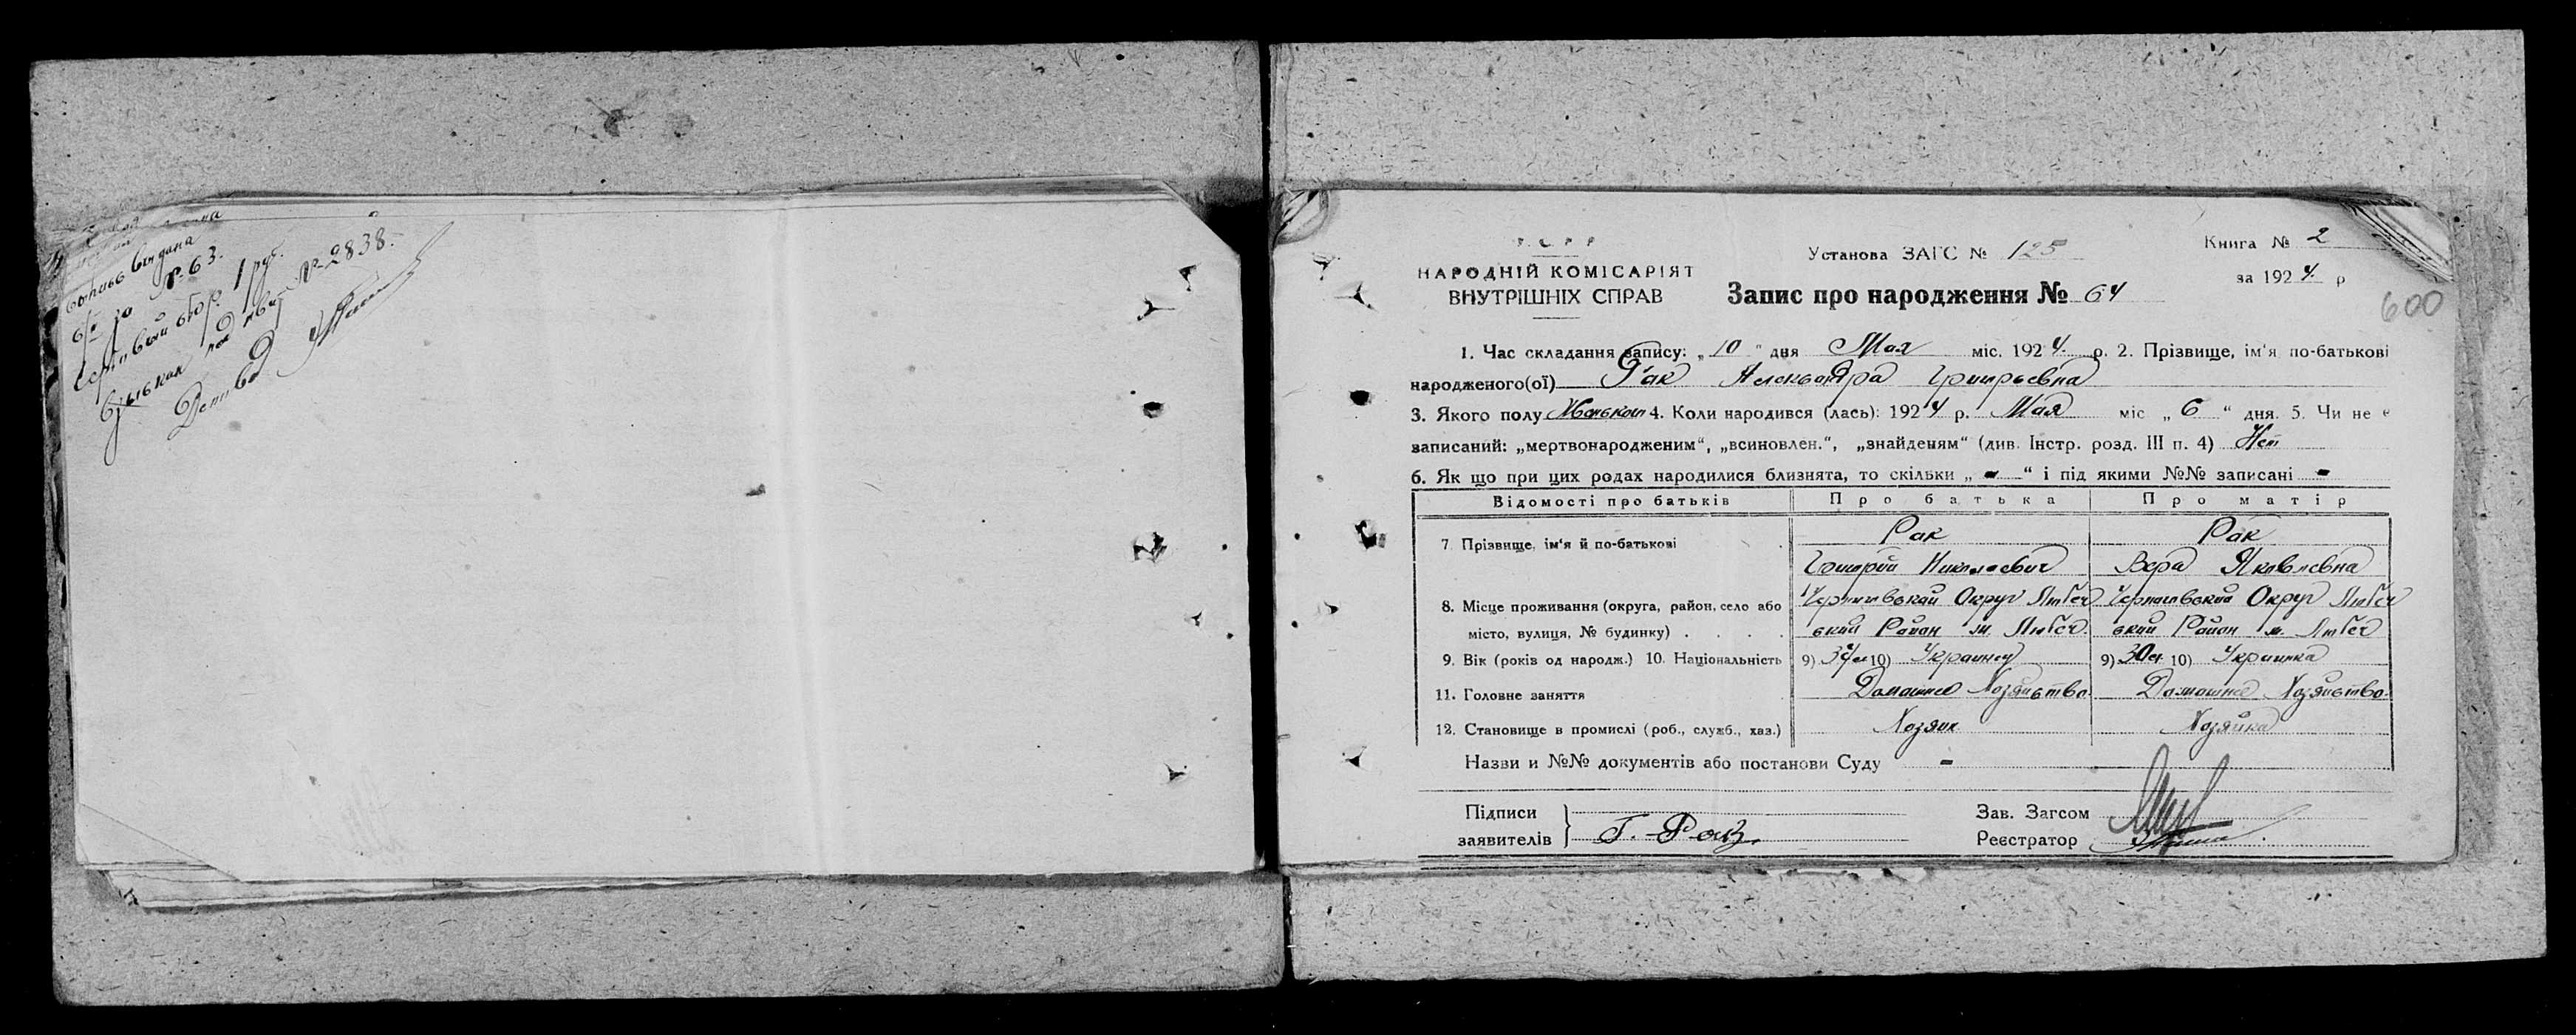 выдана
за № 63.
сбор. 1 руб.
№ 2838.
У. С. Р. Р.
НАРОДНІЙ КОМІСАРІЯТ
ВНУТРІШНІХ СПРАВ
Установа ЗАГС № 125
Запис про народження № 64
Книга № 2
за 1924. р
600
1. Час складання запису: „10" дня Мая міс. 1924. р. 2. Прізвище, ім'я по-батькові
народженого(ої) Рак Александра Григорьевна
3. Якого полу Женьскаго 4. Коли народився (лась): 1924 р. Мая міс „6" дня. 5. Чи не є
записаний: „мертвонародженим", „всиновлен.", „знайденям" (див. Інстр. розд. III п. 4) Нет
6. Як що при цих родах народилися близнята, то скільки „-" і під якими №№ записані -
Відомості про батьків Про батька Про матір
7 Прізвище, ім'я й по-батькові Рак Рак
Григорій Николаевич Вера Яковлевна
8. Місце проживання (округа, район, село або Черниговский Округ Любеч Черниговский Округ Любеч
місто, вулиця, № будинку) . . . . ский Район м. Любеч. ский Район м. Любеч
9. Вік (років од народж.) 10. Національність 9) 34 л 10) Украинец 9) 30 л. 10) Украинка
11. Головне заняття Домашнее Хозяйство. Домашнее Хозяйство.
12. Становище в промислі (роб., служб., хаз.) Хозяин Хозяйка
Назви и №№ документів або постанови Суду -
Підписи
заявителів } Г. Рак
Зав. Загсом
Реєстратор